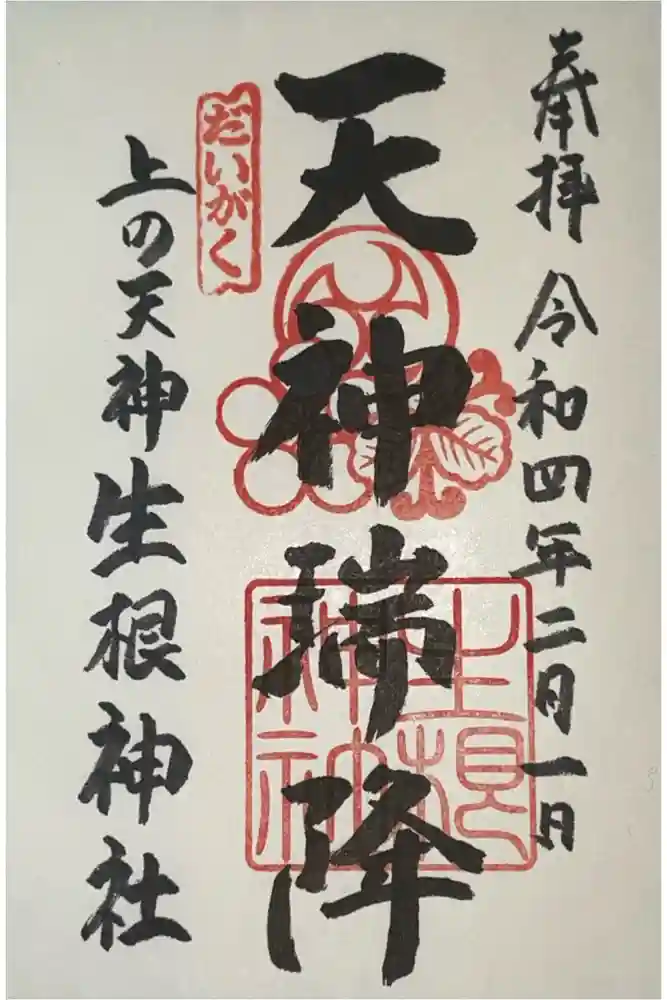 奉拝 令和四年二月一日
天神瑞降
だいがく
上の天神 生根神社
生根神社